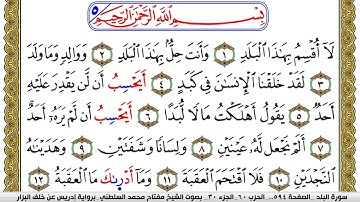 بِسْمِ ٱللَّهِ ٱلرَّحْمَٰنِ ٱلرَّحِيمِ
لَآ أُقْسِمُ بِهَٰذَا ٱلْبَلَدِ ١ وَأَنتَ حِلٌّۢ بِهَٰذَا ٱلْبَلَدِ ٢ وَوَالِدٍ وَمَا وَلَدَ
٣ لَقَدْ خَلَقْنَا ٱلْإِنسَٰنَ فِى كَبَدٍ ٤ أَيَحْسِبُ أَن لَّن يَقْدِرَ عَلَيْهِ
أَحَدٌ ٥ يَقُولُ أَهْلَكْتُ مَالًا لُّبَدًا ٦ أَيَحْسِبُ أَن لَّمْ يَرَهُۥٓ أَحَدٌ
٧ أَلَمْ نَجْعَل لَّهُۥ عَيْنَيْنِ ٨ وَلِسَانًا وَشَفَتَيْنِ ٩ وَهَدَيْنَٰهُ
ٱلنَّجْدَيْنِ ١٠ فَلَا ٱقْتَحَمَ ٱلْعَقَبَةَ ١١ وَمَآ أَدْرَىٰكَ مَا ٱلْعَقَبَةُ ١٢
سورة البلد . الصفحة ٥٩٤ . الحزب ٦٠ . الجزء ٣٠ . بصوت الشيخ مفتاح محمد السلطني . برواية إدريس عن خلف البزار